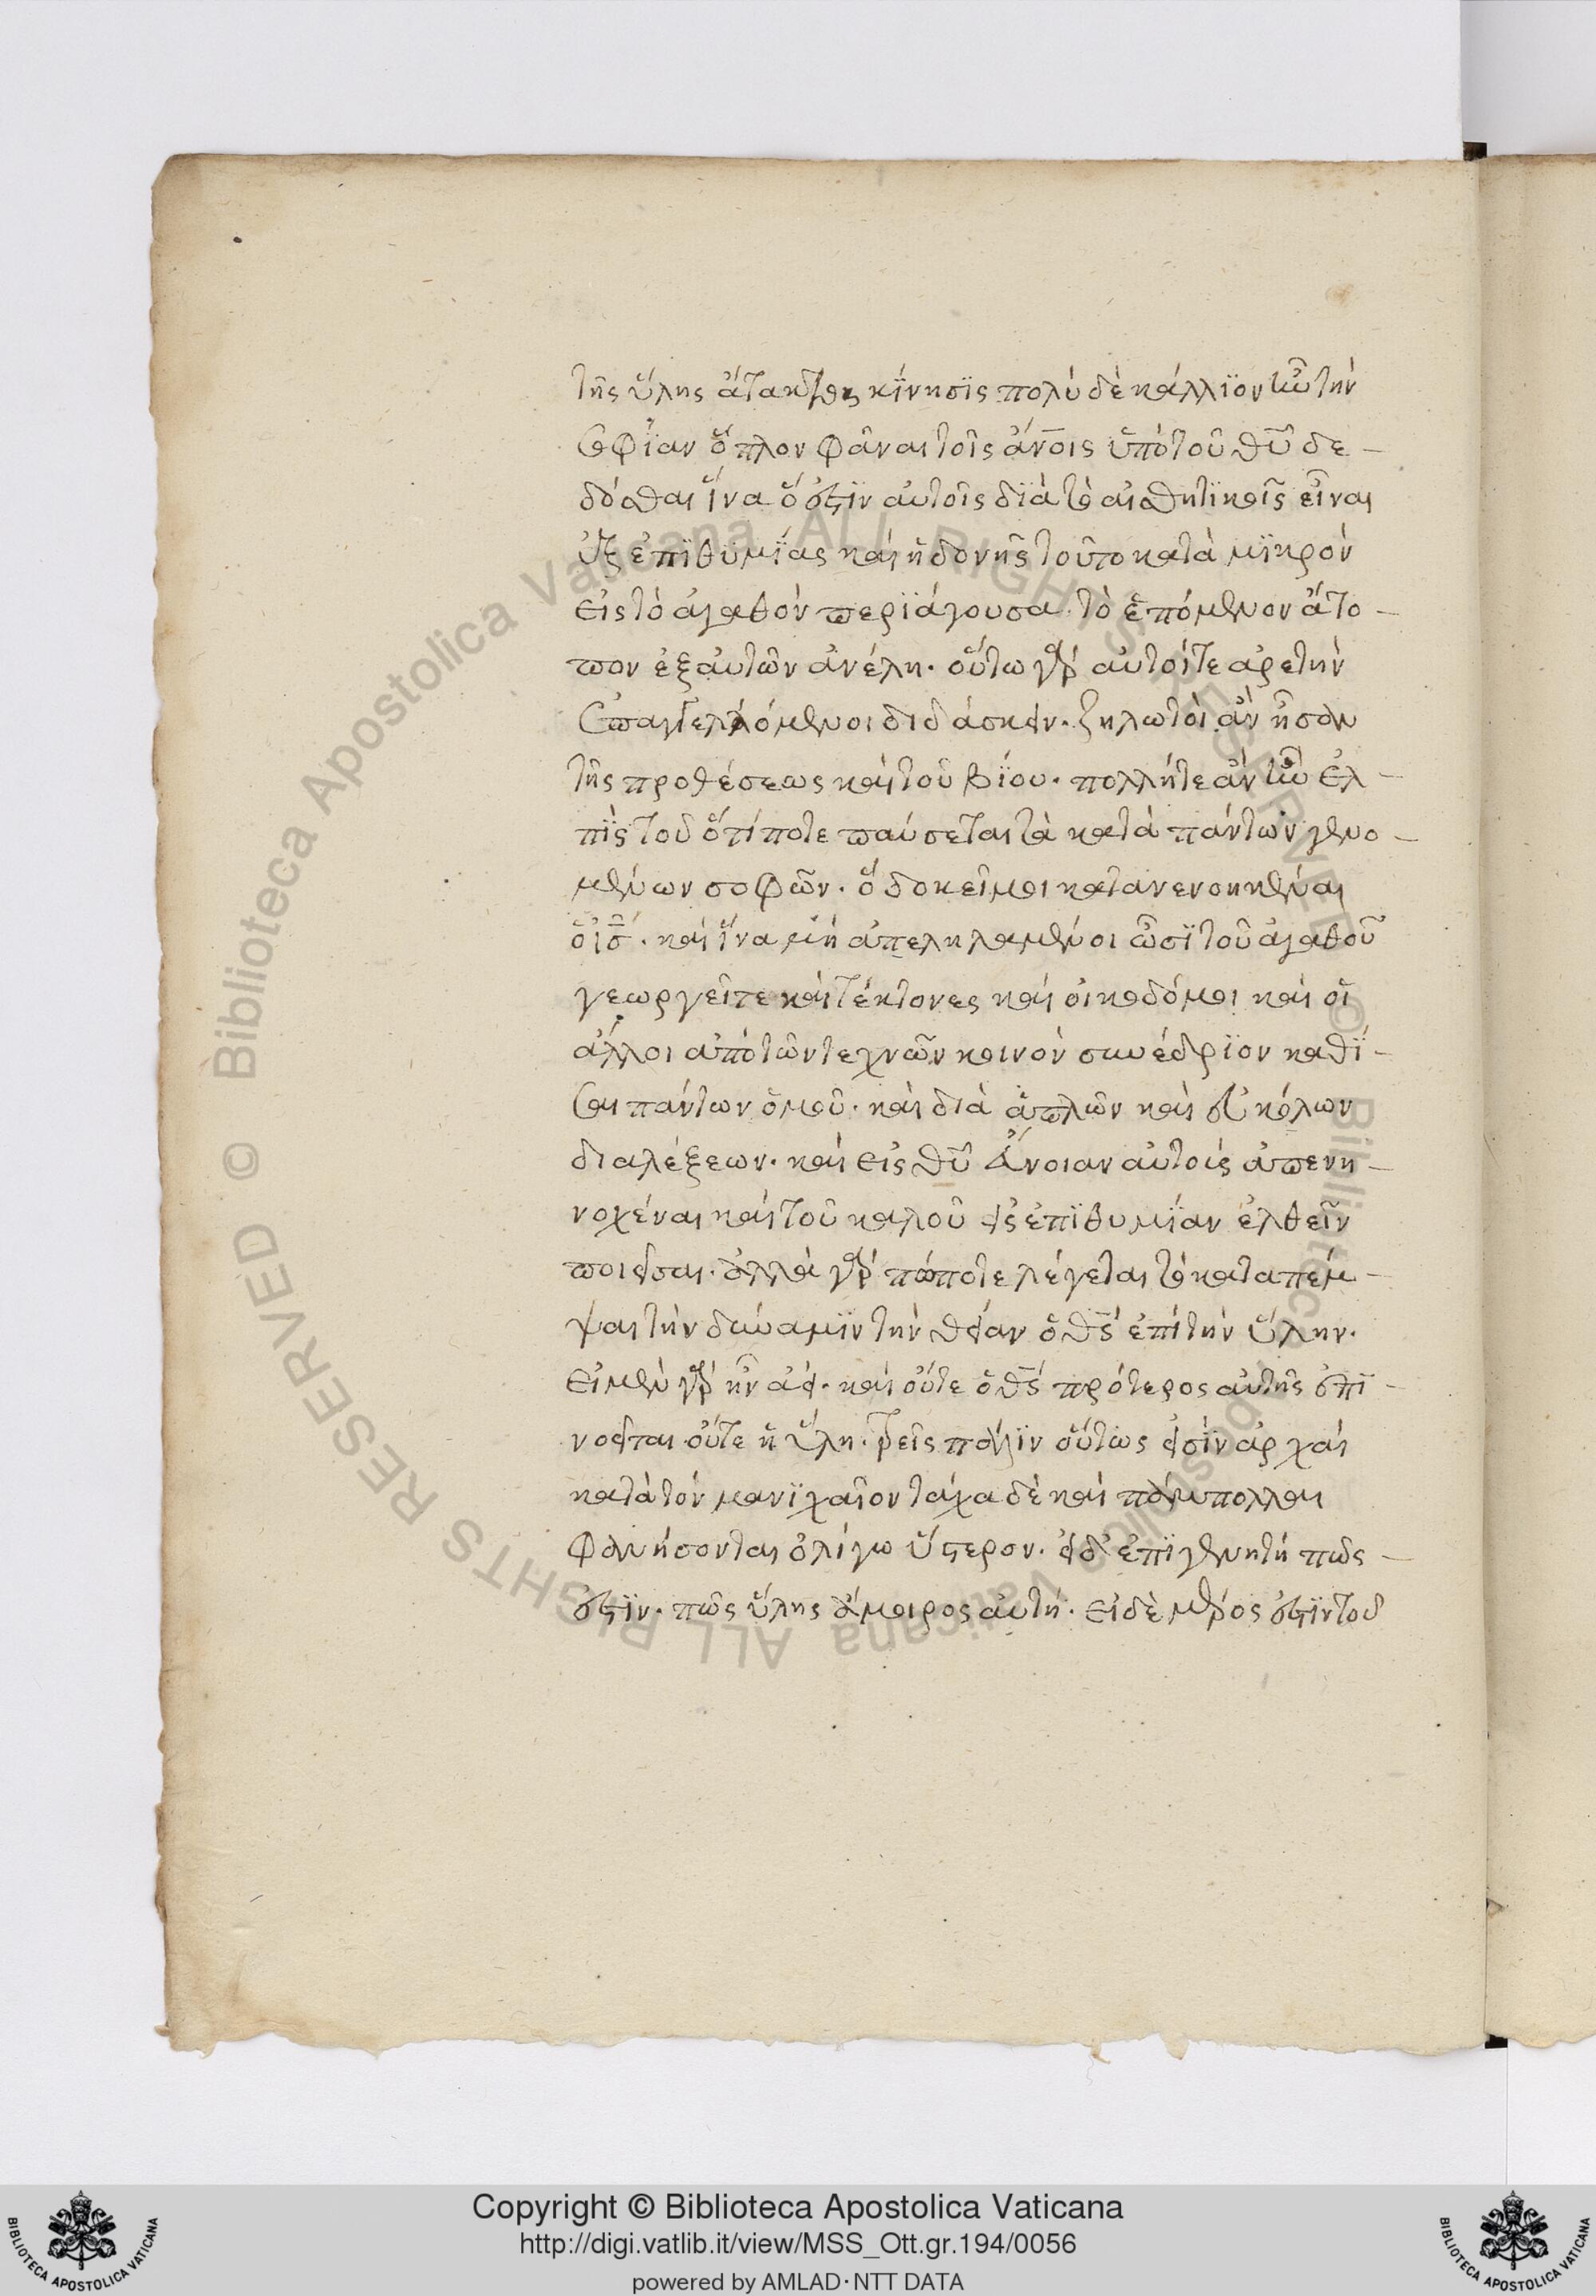 τῆς ὕλης ἄτακτος κίνησϊς πολὺ δὲ κάλλϊον ἦν τὴν
σοφίαν ὅπλον φᾶναι τοῖς ἀν̅οις ὑπὸ τοῦ θ̅υ δε-
δόσθαι ἵνα ὅ ἐστϊν αὐτοῖς διὰ τὸ αἰσθητικοῖς εἶναι
ἐξ ἐπϊθυμίας καὶ ἡδονῆς τοῦτο κατὰ μϊκρὸν
εἰς τὸ ἀγαθὸν περϊάγουσα. τὸ ἑπόμενον ἄτο-
πον ἐξ αὐτῶν ἀνέλη. οὕτω γὰρ αὐτοί τε ἀρετὴν
ἐπαγγελλόμενοι διδάσκειν. ζηλωτοὶ ἂν ἦσαν
τῆς προθέσεως καὶ τοῦ βίου. πολλή τε ἂν ἦν ἐλ-
πῒς τοῦ ὅτί ποτε παύσεται τὰ κατὰ πάντων γενο-
μένων σοφῶν. ὅ δοκεῖ μοι κατανενοηκέναι
ὁ ἰ̅ς. καὶ ἵνα μὴ ἀπεληλαμένοι ὦσϊ τοῦ ἀγαθοῦ
γεωργεῖτε καὶ τέκτονες καὶ οἰκοδόμοι καὶ οἱ
ἄλλοι ἀπὸ τῶν τεχνῶν κοινὸν συνέδρϊον καθί-
σαι πάντων ὁμοῦ. καὶ διὰ ἁπλῶν καὶ εὐκόλων
διαλέξεων. καὶ εἰς θ̅υ ἔννοιαν αὐτοὺς ἀπενη-
νοχέναι καὶ τοῦ καλοῦ εἰς ἐπϊθυμίαν ἐλθεῖν
ποιεῖσαι. ἀλλὰ γὰρ πώποτε λέγεται τὸ καταπέμ-
ψαι τὴν δύναμϊν τὴν θείαν ὁ θ̅ς ἐπὶ τὴν ὕλην.
εἰ μὲν γὰρ ἦν ἀεί. καὶ οὔτε ὁ θ̅ς πρότερος αὐτῆς ἐπι-
νοεῖται οὔτε ἡ ὕλη. τρεῖς πάλϊν οὕτως εἰσὶν ἀρχαὶ
κατὰ τὸν μανϊχαῖον τάχα δὲ καὶ πάνυ πολλαι
φανήσονται ὀλίγω ὕστερον. εἰ δὲ ἐπϊγενητή πῶς
ἐστϊν. πῶς ὕλης ἄμοιρος αὐτή. εἰ δὲ μέρος ἐστϊν τοῦ
Copyright © Biblioteca Apostolica Vaticana
http://digi.vatlib.it/view/MSS_Ott.gr.194/0056
powered by AMLAD·NTT DATA